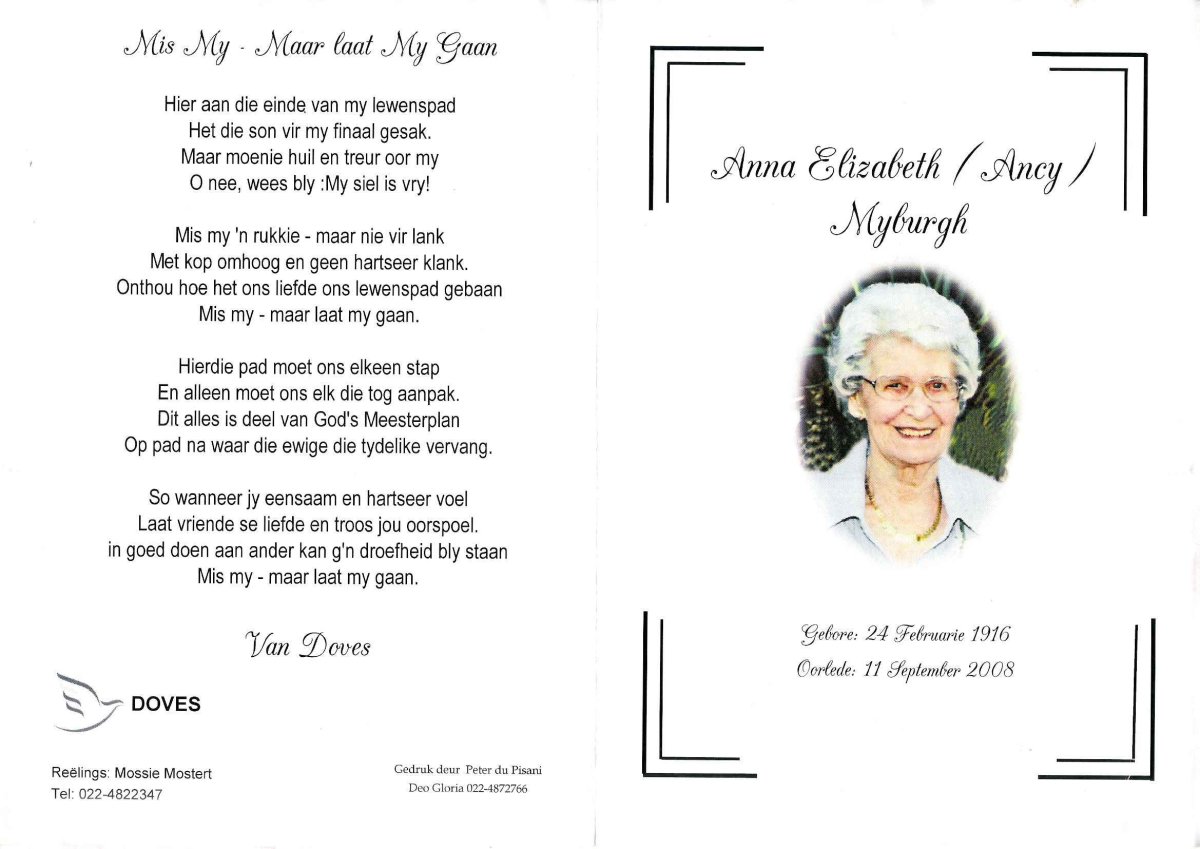 Mis My - Maar laat My Gaan
Hier aan die einde van my lewenspad
Het die son vir my finaal gesak.
Maar moenie huil en treur oor my
O nee, wees bly :My siel is vry!
Mis my 'n rukkie - maar nie vir lank
Met kop omhoog en geen hartseer klank.
Onthou hoe het ons liefde ons lewenspad gebaan
Mis my - maar laat my gaan.
Hierdie pad moet ons elkeen stap
En alleen moet ons elk die tog aanpak.
Dit alles is deel van God's Meesterplan
Op pad na waar die ewige die tydelike vervang.
So wanneer jy eensaam en hartseer voel
Laat vriende se liefde en troos jou oorspoel.
in goed doen aan ander kan g'n droefheid bly staan
Mis my - maar laat my gaan.
Van Doves
DOVES
Reëlings: Mossie Mostert
Tel: 022-4822347
Gedruk deur Peter du Pisani
Deo Gloria 022-4872766
Anna Elizabeth ( Ancy )
Myburgh
Gebore: 24 Februarie 1916
Oorlede: 11 September 2008